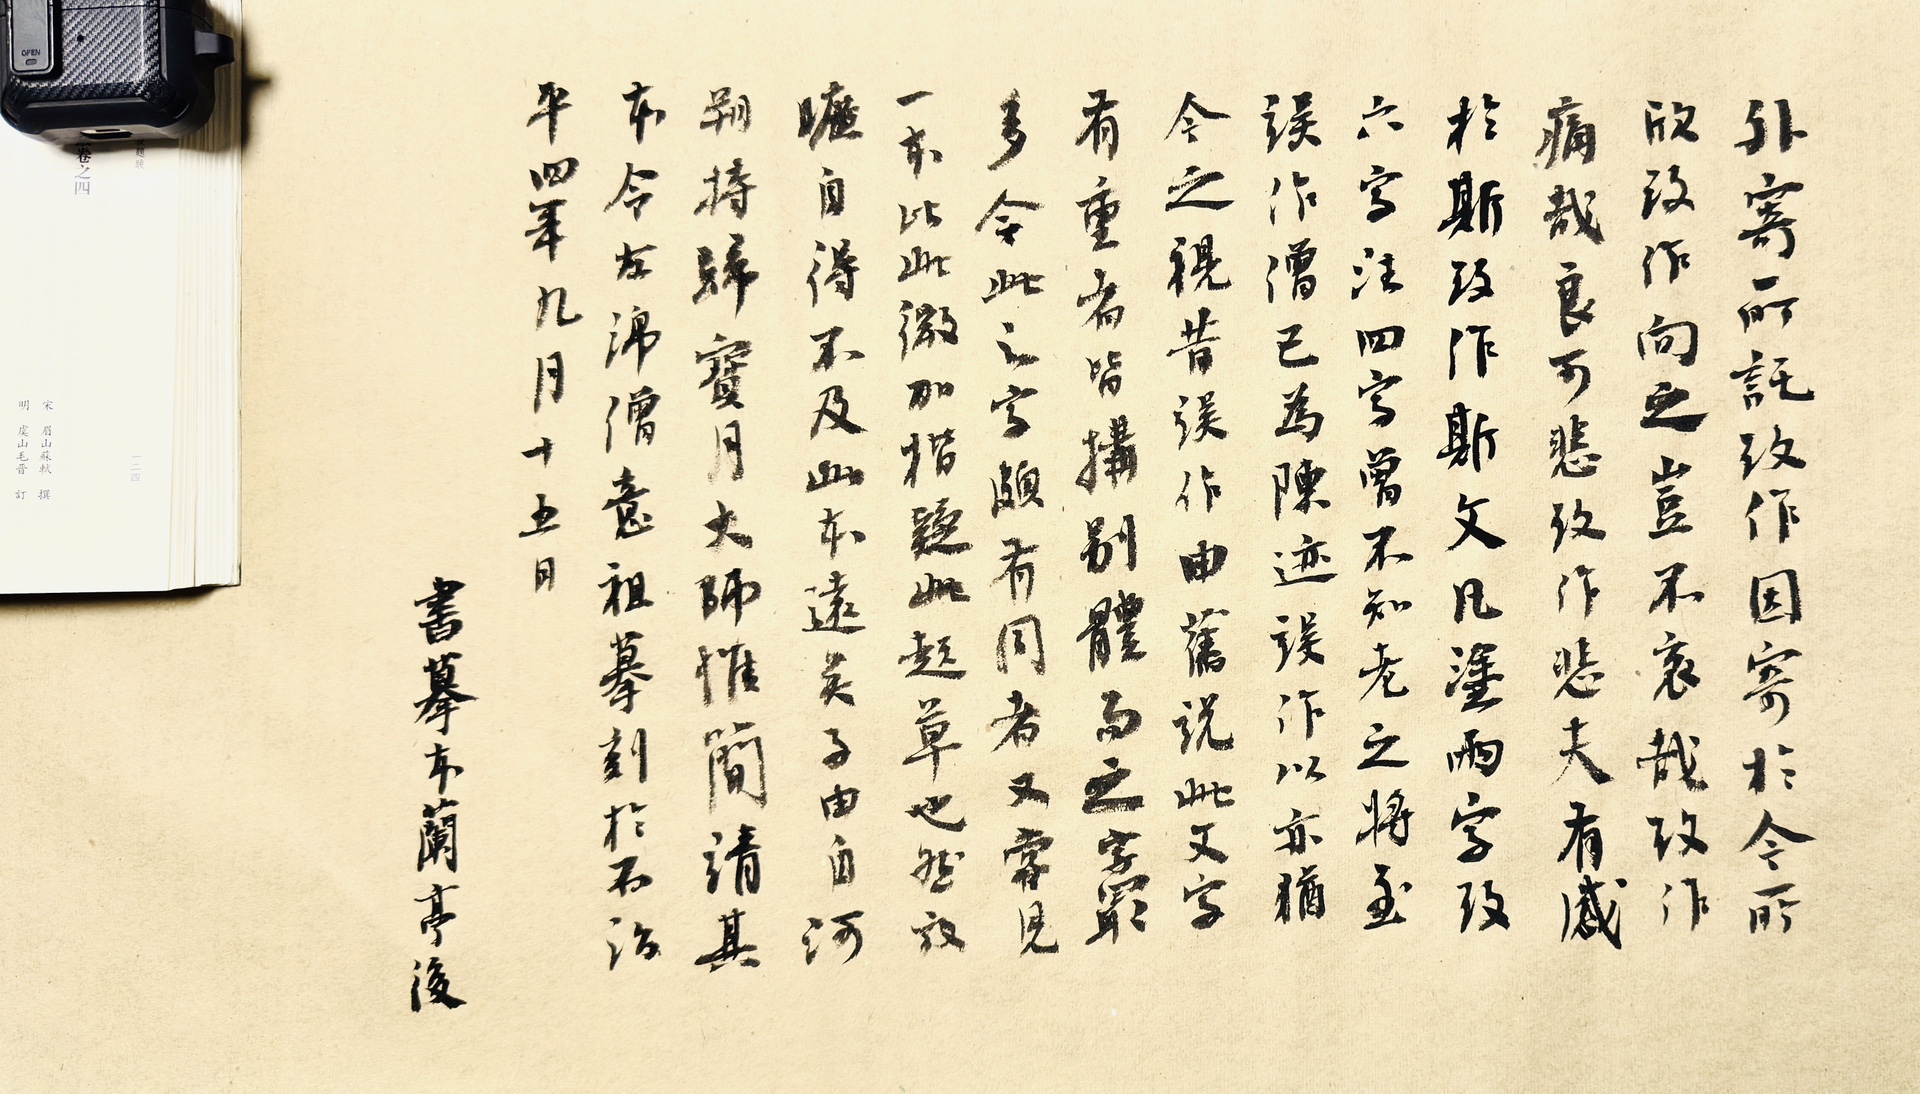 外寄所託改作因寄於今所
欣改作向之豈不哀哉改作
痛哉良可悲改作悲夫有感
於斯改作斯文凡塗兩字改
六字注四字曾不知老之將至
誤作僧已為陳迹誤作以亦猶
今之視昔誤作由舊說此文字
有重者皆搆別體而之字最
多今此之字頗有同者又嘗見
一本比此微加楷疑此起草也然放
曠自得不及此本遠矣子由自河
朔持歸寶月大師惟簡請其
本令左綿僧意祖摹刻於石治
平四年九月十五日
書摹本蘭亭後
一二四
卷之四
宋 眉山蘇軾 撰
明 虞山毛晉 訂
OPEN